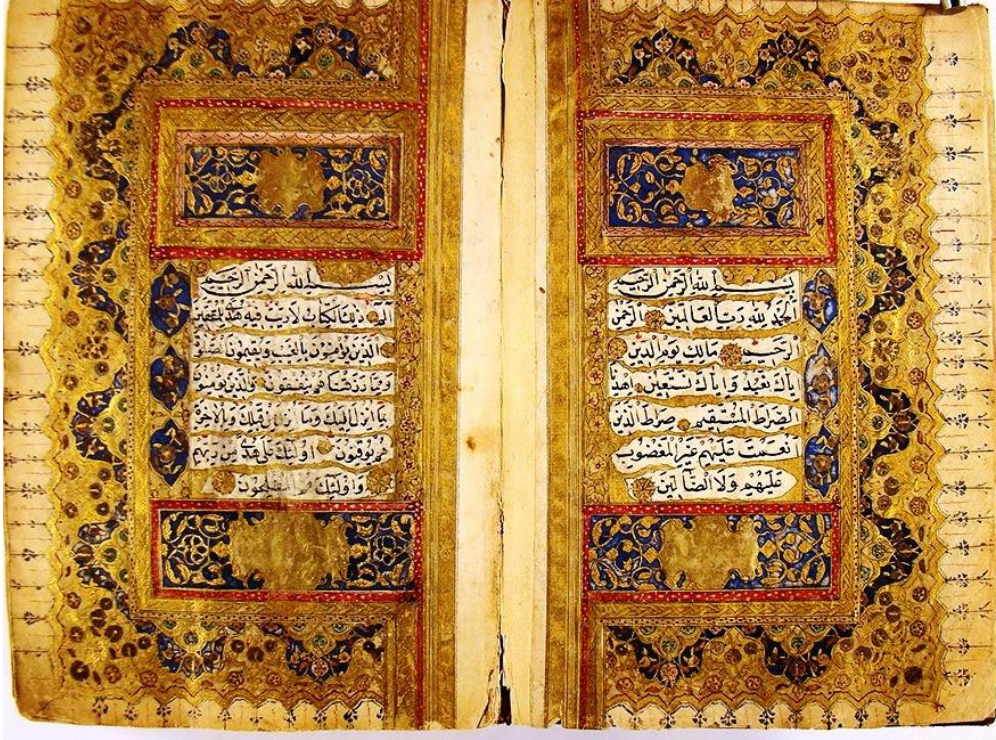 بسم الله الرحمن الرحيم
الحمد لله رب العالمين الرحمن
الرحيم مالك يوم الدين
اياك نعبد واياك نستعين اهدنا
الصراط المستقيم صراط الذين
انعمت عليهم غير المغضوب
عليهم ولا الضالين
بسم الله الرحمن الرحيم
الم ذلك الكتاب لا ريب فيه هدى للمتقين
الذين يؤمنون بالغيب ويقيمون الصلوة
ومما رزقناهم ينفقون والذين يؤمنون
بما انزل اليك وما انزل من قبلك وبالاخرة
هم يوقنون اولئك على هدى من ربهم
واولئك هم المفلحون